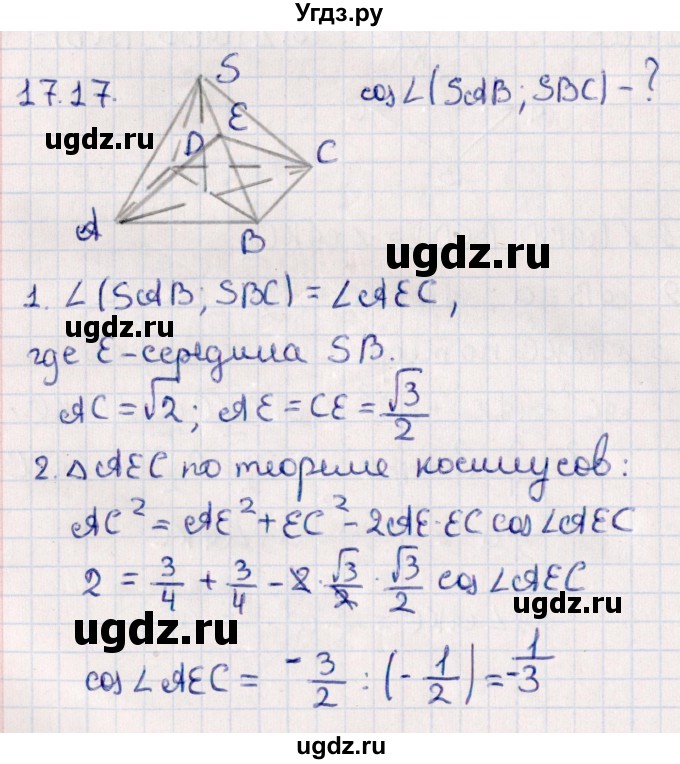 Угдз.ру
17.17.
cos∠(SAB; SBC) - ?
ugdz.ru
S
E
D
C
A
B
ugdz.ru
1. ∠(SAB; SBC) = ∠AEC,
ugdz.ru
где E - середина SB.
AC = √2; AE = CE = √3/2
2. △AEC по теореме косинусов:
AC² = AE² + EC² - 2AE·EC cos∠AEC
ugdz.ru
2 = 3/4 + 3/4 - 2 · √3/2 · √3/2 cos∠AEC
ugdz.ru
cos∠AEC = -3/2 : (-1/2) = 1/-3
ugdz.ru
ugdz.ru